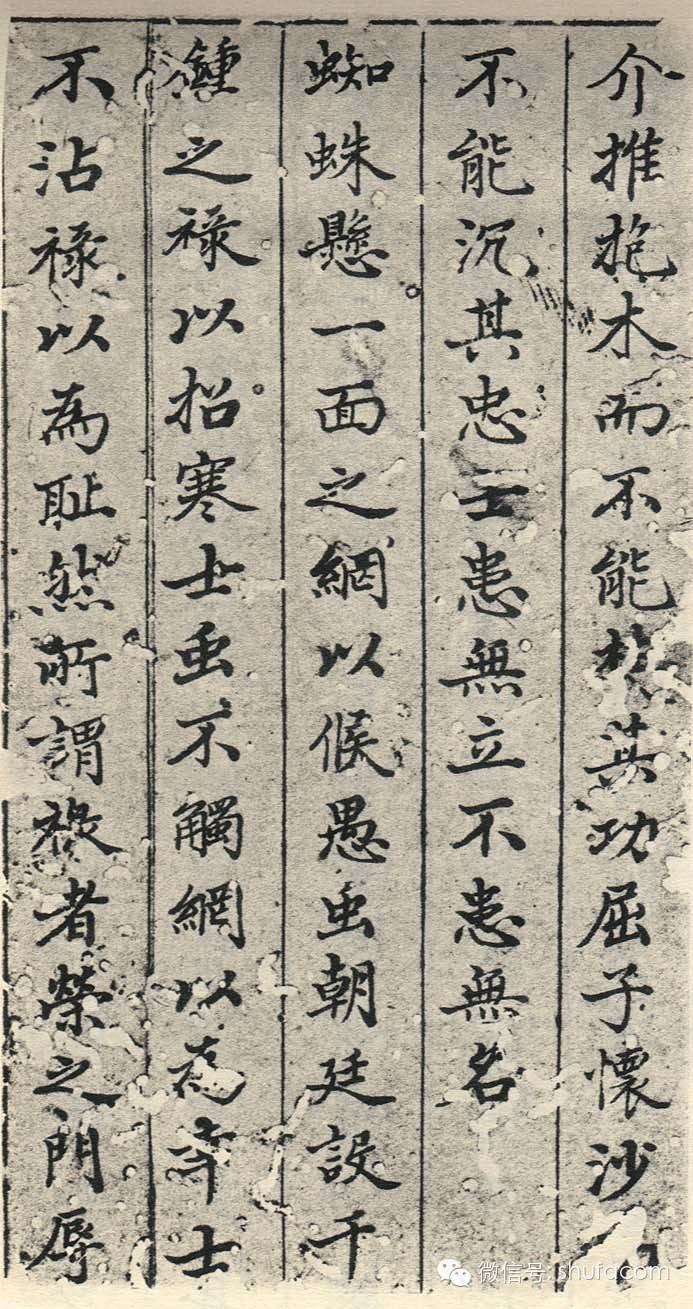 介推抱木而不能其功屈子懷沙
不能沉其忠士患無立不患無名
蜘蛛懸一面之網以候愚虫朝廷設千
鍾之祿以招寒士虫不觸網以為幸士
不沾祿以為耻然所謂祿者榮之門辱
微信号: shufacom